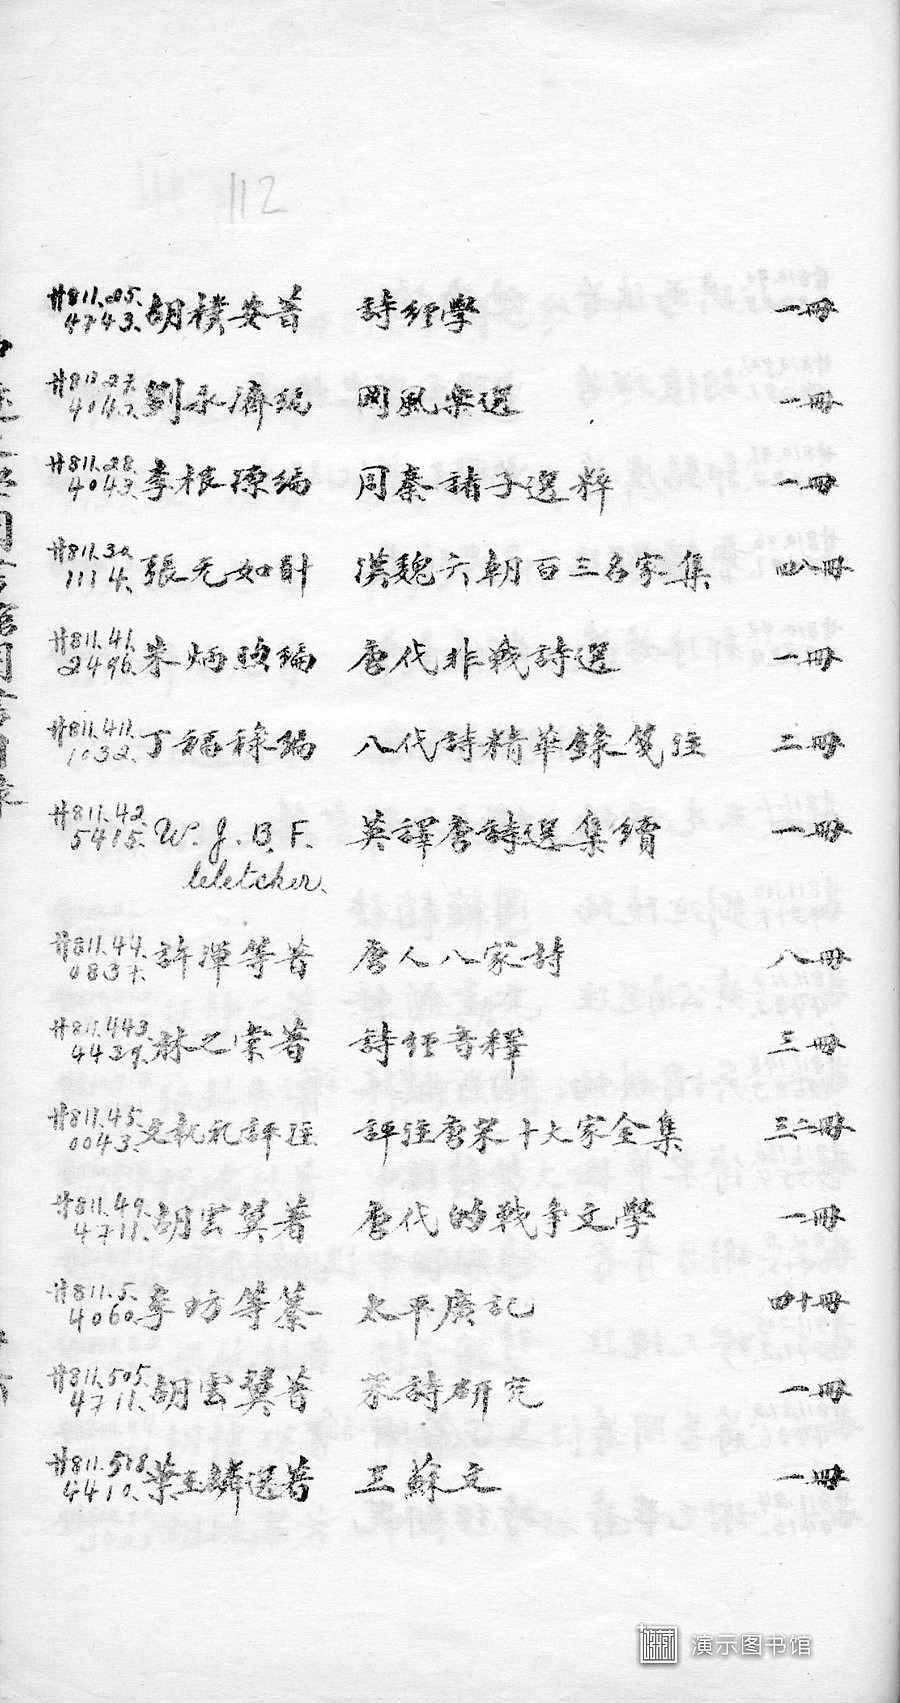 112
廿811.05. 胡樸安著 詩經學 一冊
4743.
廿811.27. 劉永濟編 國風樂選 一冊
4047.
廿811.28. 李根源編 周秦諸子選粹 一冊
4043.
廿811.30. 張天如計 漢魏六朝百三名家集 四八冊
1114.
廿811.41. 朱炳煦編 唐代非戰詩選 一冊
2496.
廿811.411. 丁福祿編 八代詩精華錄箋注 二冊
1032.
廿811.42. W. J. B. F. 英譯唐詩選集續 一冊
5415. leletcher.
廿811.44. 許渾等著 唐人八家詩 八冊
0837.
廿811.443. 林之棠著 詩經音釋 三冊
4439.
廿811.45. 文執礼評註 評註唐宋十大家全集 三二冊
0043.
廿811.49. 胡雲翼著 唐代的戰爭文學 一冊
4711.
廿811.5. 李坊等纂 太平廣記 四十冊
4060.
廿811.505. 胡雲翼著 宋詩研究 一冊
4711.
廿811.518 葉玉麟選著 三蘇文 一冊
4410.
演示图书馆